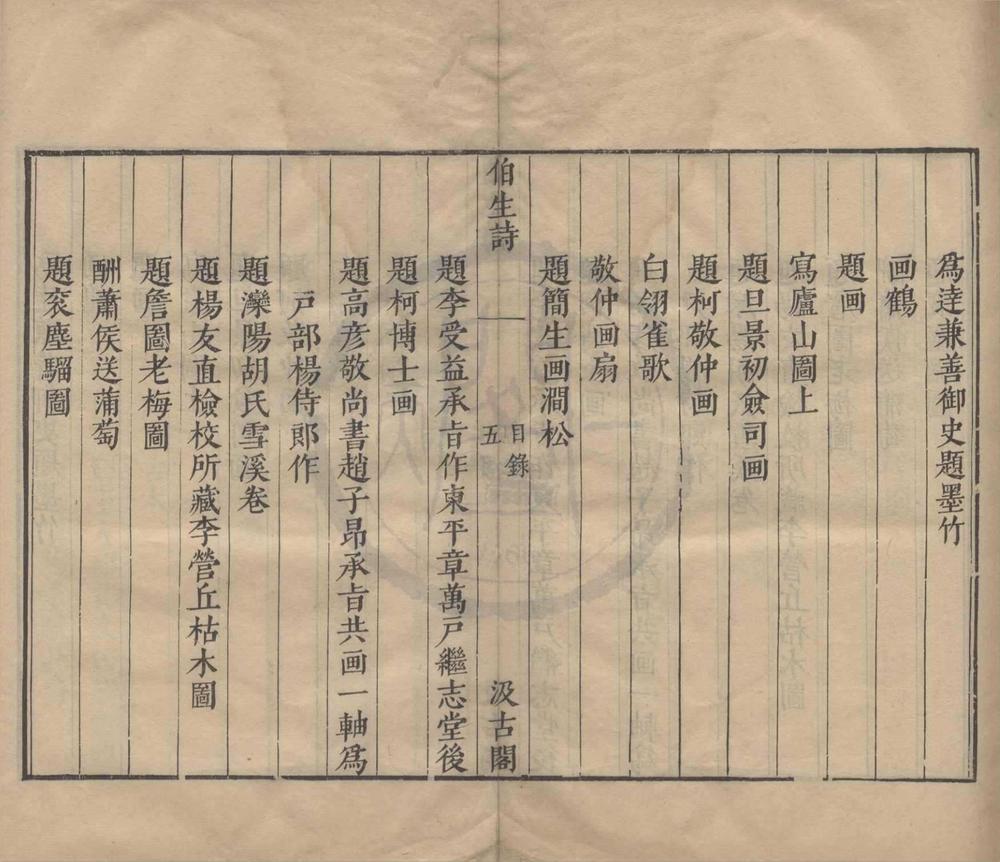 爲逹兼善御史題墨竹
画鶴
題画
寫廬山圖上
題旦景初僉司画
題柯敬仲画
白翎雀歌
敬仲画扇
題簡生画澗松
伯生詩
目錄
五
汲古閣
題李受益承旨作東平章萬戸繼志堂後
題柯博士画
題高彦敬尚書趙子昂承旨共画一軸爲
戸部楊侍郎作
題灤陽胡氏雪溪卷
題楊友直檢校所藏李營丘枯木圖
題詹圖老梅圖
酬蕭侯送蒲萄
題衮塵騮圖